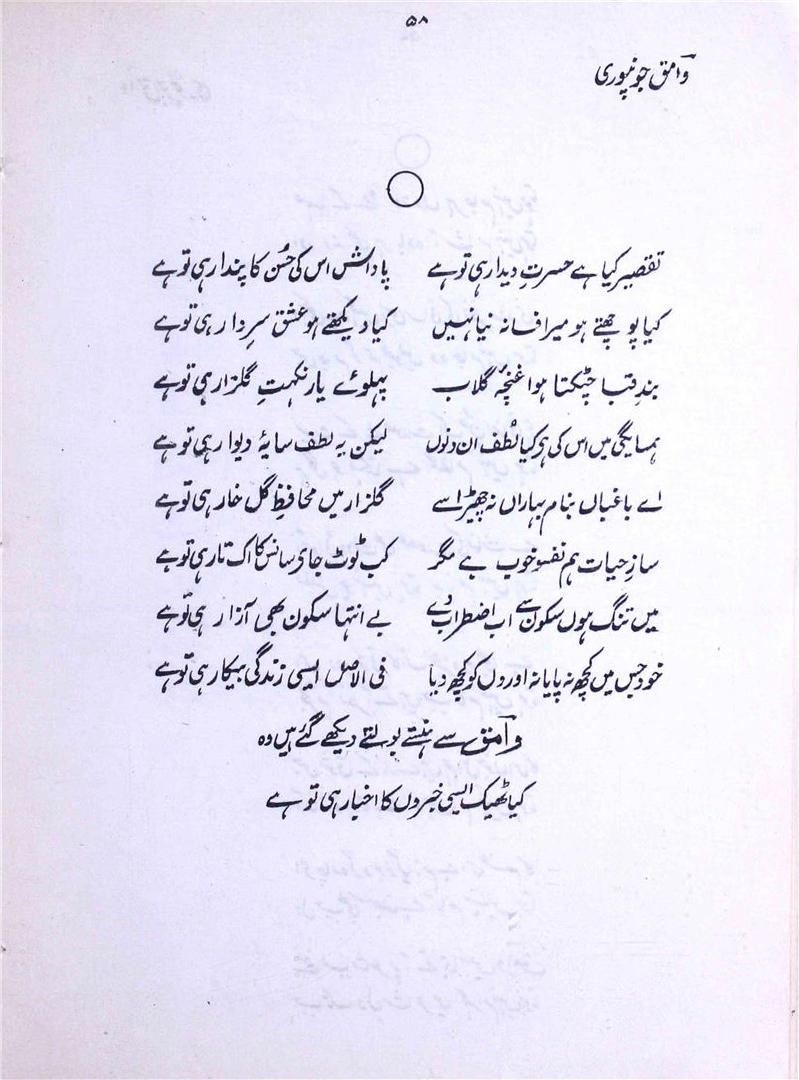 ۵۸
وامق جونپوری
تقصیر کیا ہے حسرتِ دیدار ہی تو ہے پاداش اس کی حُسن کا پندار ہی تو ہے
کیا پوچھتے ہو میرا فسانہ نیا نہیں کیا دیکھتے ہو عشق سرِ دار ہی تو ہے
بندِ قبا چٹکتا ہوا غنچۂ گلاب پہلوئے یار نکہتِ گلزار ہی تو ہے
ہمسایگی میں اس کی ہر کیا لُطف ان دنوں لیکن یہ لطف سایۂ دیوار ہی تو ہے
اے باغباں بنام بہاراں نہ چھیڑ اسے گلزار میں محافظِ گل خار ہی تو ہے
سازِ حیات ہم نفسو خوب ہے مگر کب ٹوٹ جائے سانس کا اک تار ہی تو ہے
میں تنگ ہوں سکون سے اب اضطراب دے بے انتہا سکون بھی آزار ہی تو ہے
خود جس میں کچھ نہ پایا نہ اوروں کو کچھ دیا فی الاصل ایسی زندگی بیکار ہی تو ہے
وامق سے ہنستے بولتے دیکھے گئے ہیں وہ
کیا ٹھیک ایسی خبروں کا اخبار ہی تو ہے